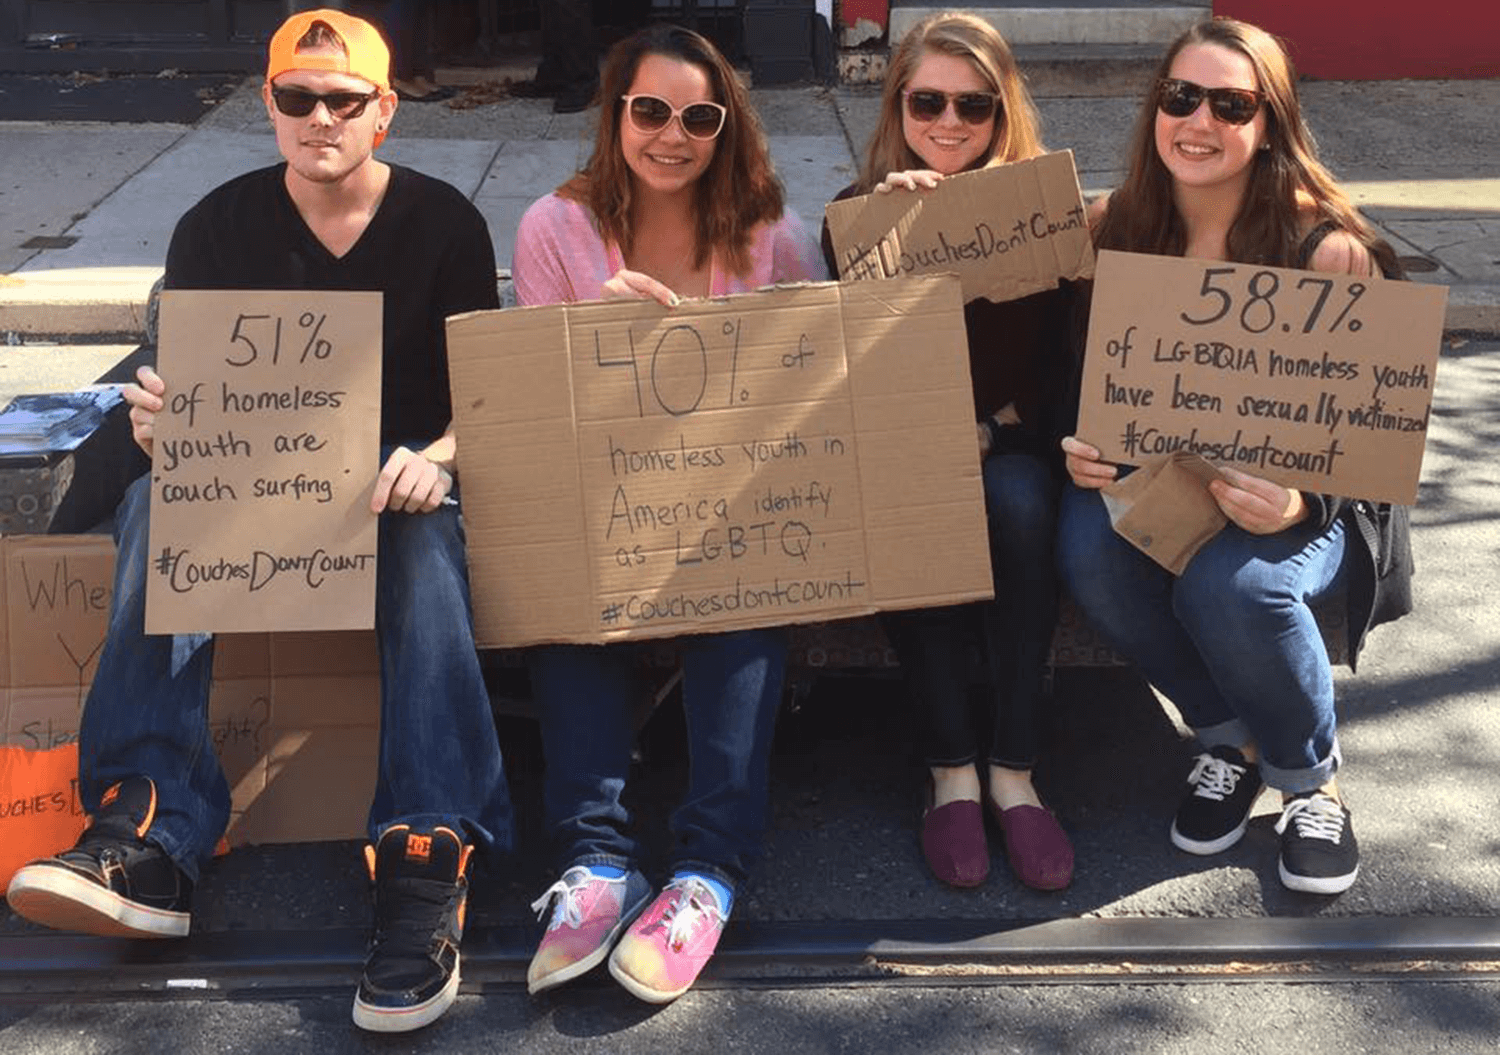 51%
of homeless
youth are
"couch surfing"
#CouchesDontCount
40% of
homeless youth in
America identify
as LGBTQ.
#Couchesdontcount
#CouchesDontCount
58.7%
of LGBTQIA homeless youth
have been sexually victimized
#Couchesdontcount